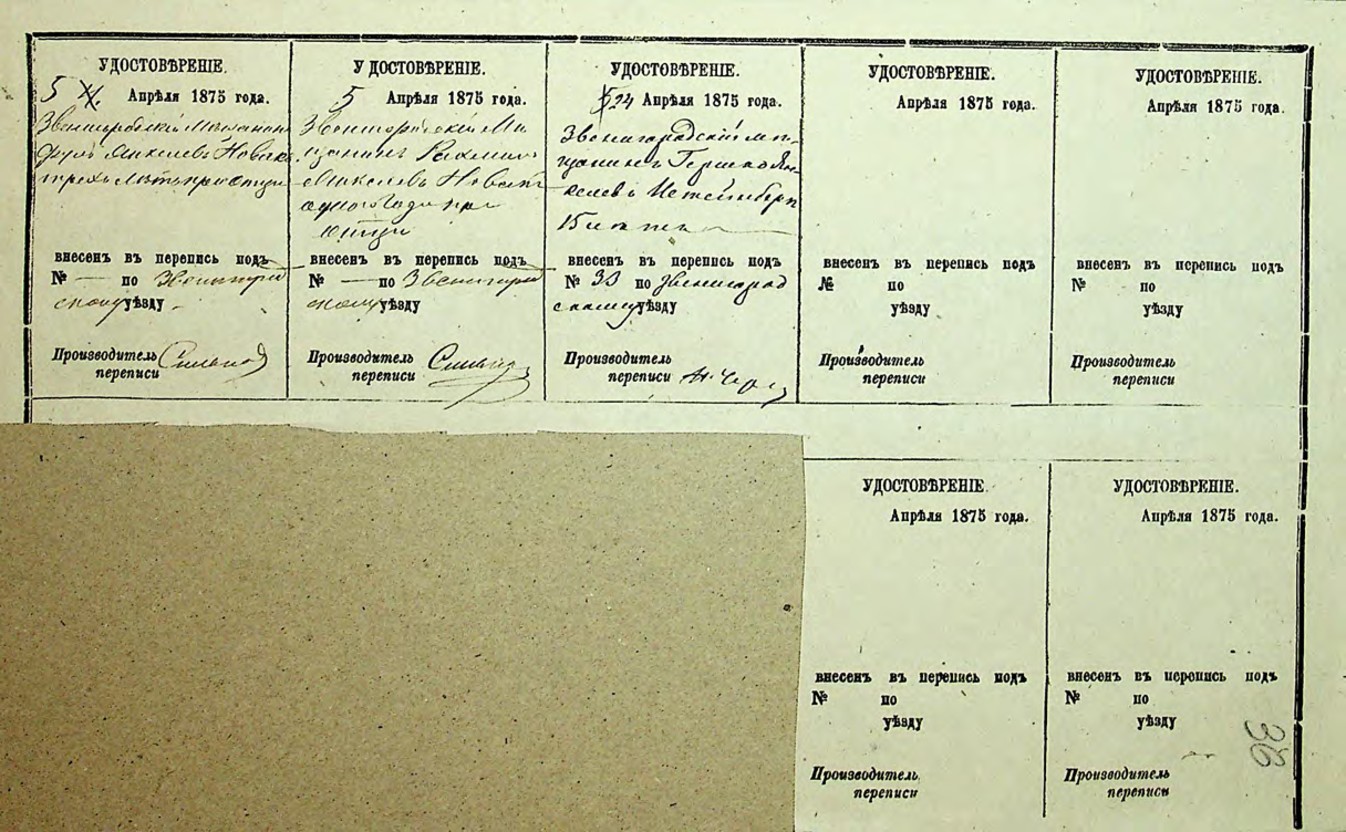 УДОСТОВѢРЕНІЕ.
5 Апрѣля 1875 года.
Звенигородскій
Янкелевъ Новак
трехъ лѣтъ при отцѣ
внесенъ въ перепись подъ
№ — по Звенигород
скому уѣзду
Производитель
переписи
УДОСТОВѢРЕНІЕ.
5 Апрѣля 1875 года.
Звенигородскій Мѣ
щанинъ
Янкелевъ Новак
одного года при
отцѣ
внесенъ въ перепись подъ
№ — по Звенигород
скому уѣзду
Производитель
переписи
УДОСТОВѢРЕНІЕ.
24 Апрѣля 1875 года.
Звенигородскій мѣ-
щанинъ Гершко Ян-
келевъ
15 лѣтъ
внесенъ въ перепись подъ
№ 33 по Звенигород
скому уѣзду
Производитель
переписи
УДОСТОВѢРЕНІЕ.
Апрѣля 1875 года.
внесенъ въ перепись подъ
№ по
уѣзду
Производитель
переписи
УДОСТОВѢРЕНІЕ.
Апрѣля 1875 года.
внесенъ въ перепись подъ
№ по
уѣзду
Производитель
переписи
УДОСТОВѢРЕНІЕ.
Апрѣля 1875 года.
внесенъ въ перепись подъ
№ по
уѣзду
Производитель
переписи
УДОСТОВѢРЕНІЕ.
Апрѣля 1875 года.
внесенъ въ перепись подъ
№ по
уѣзду
Производитель
переписи
36